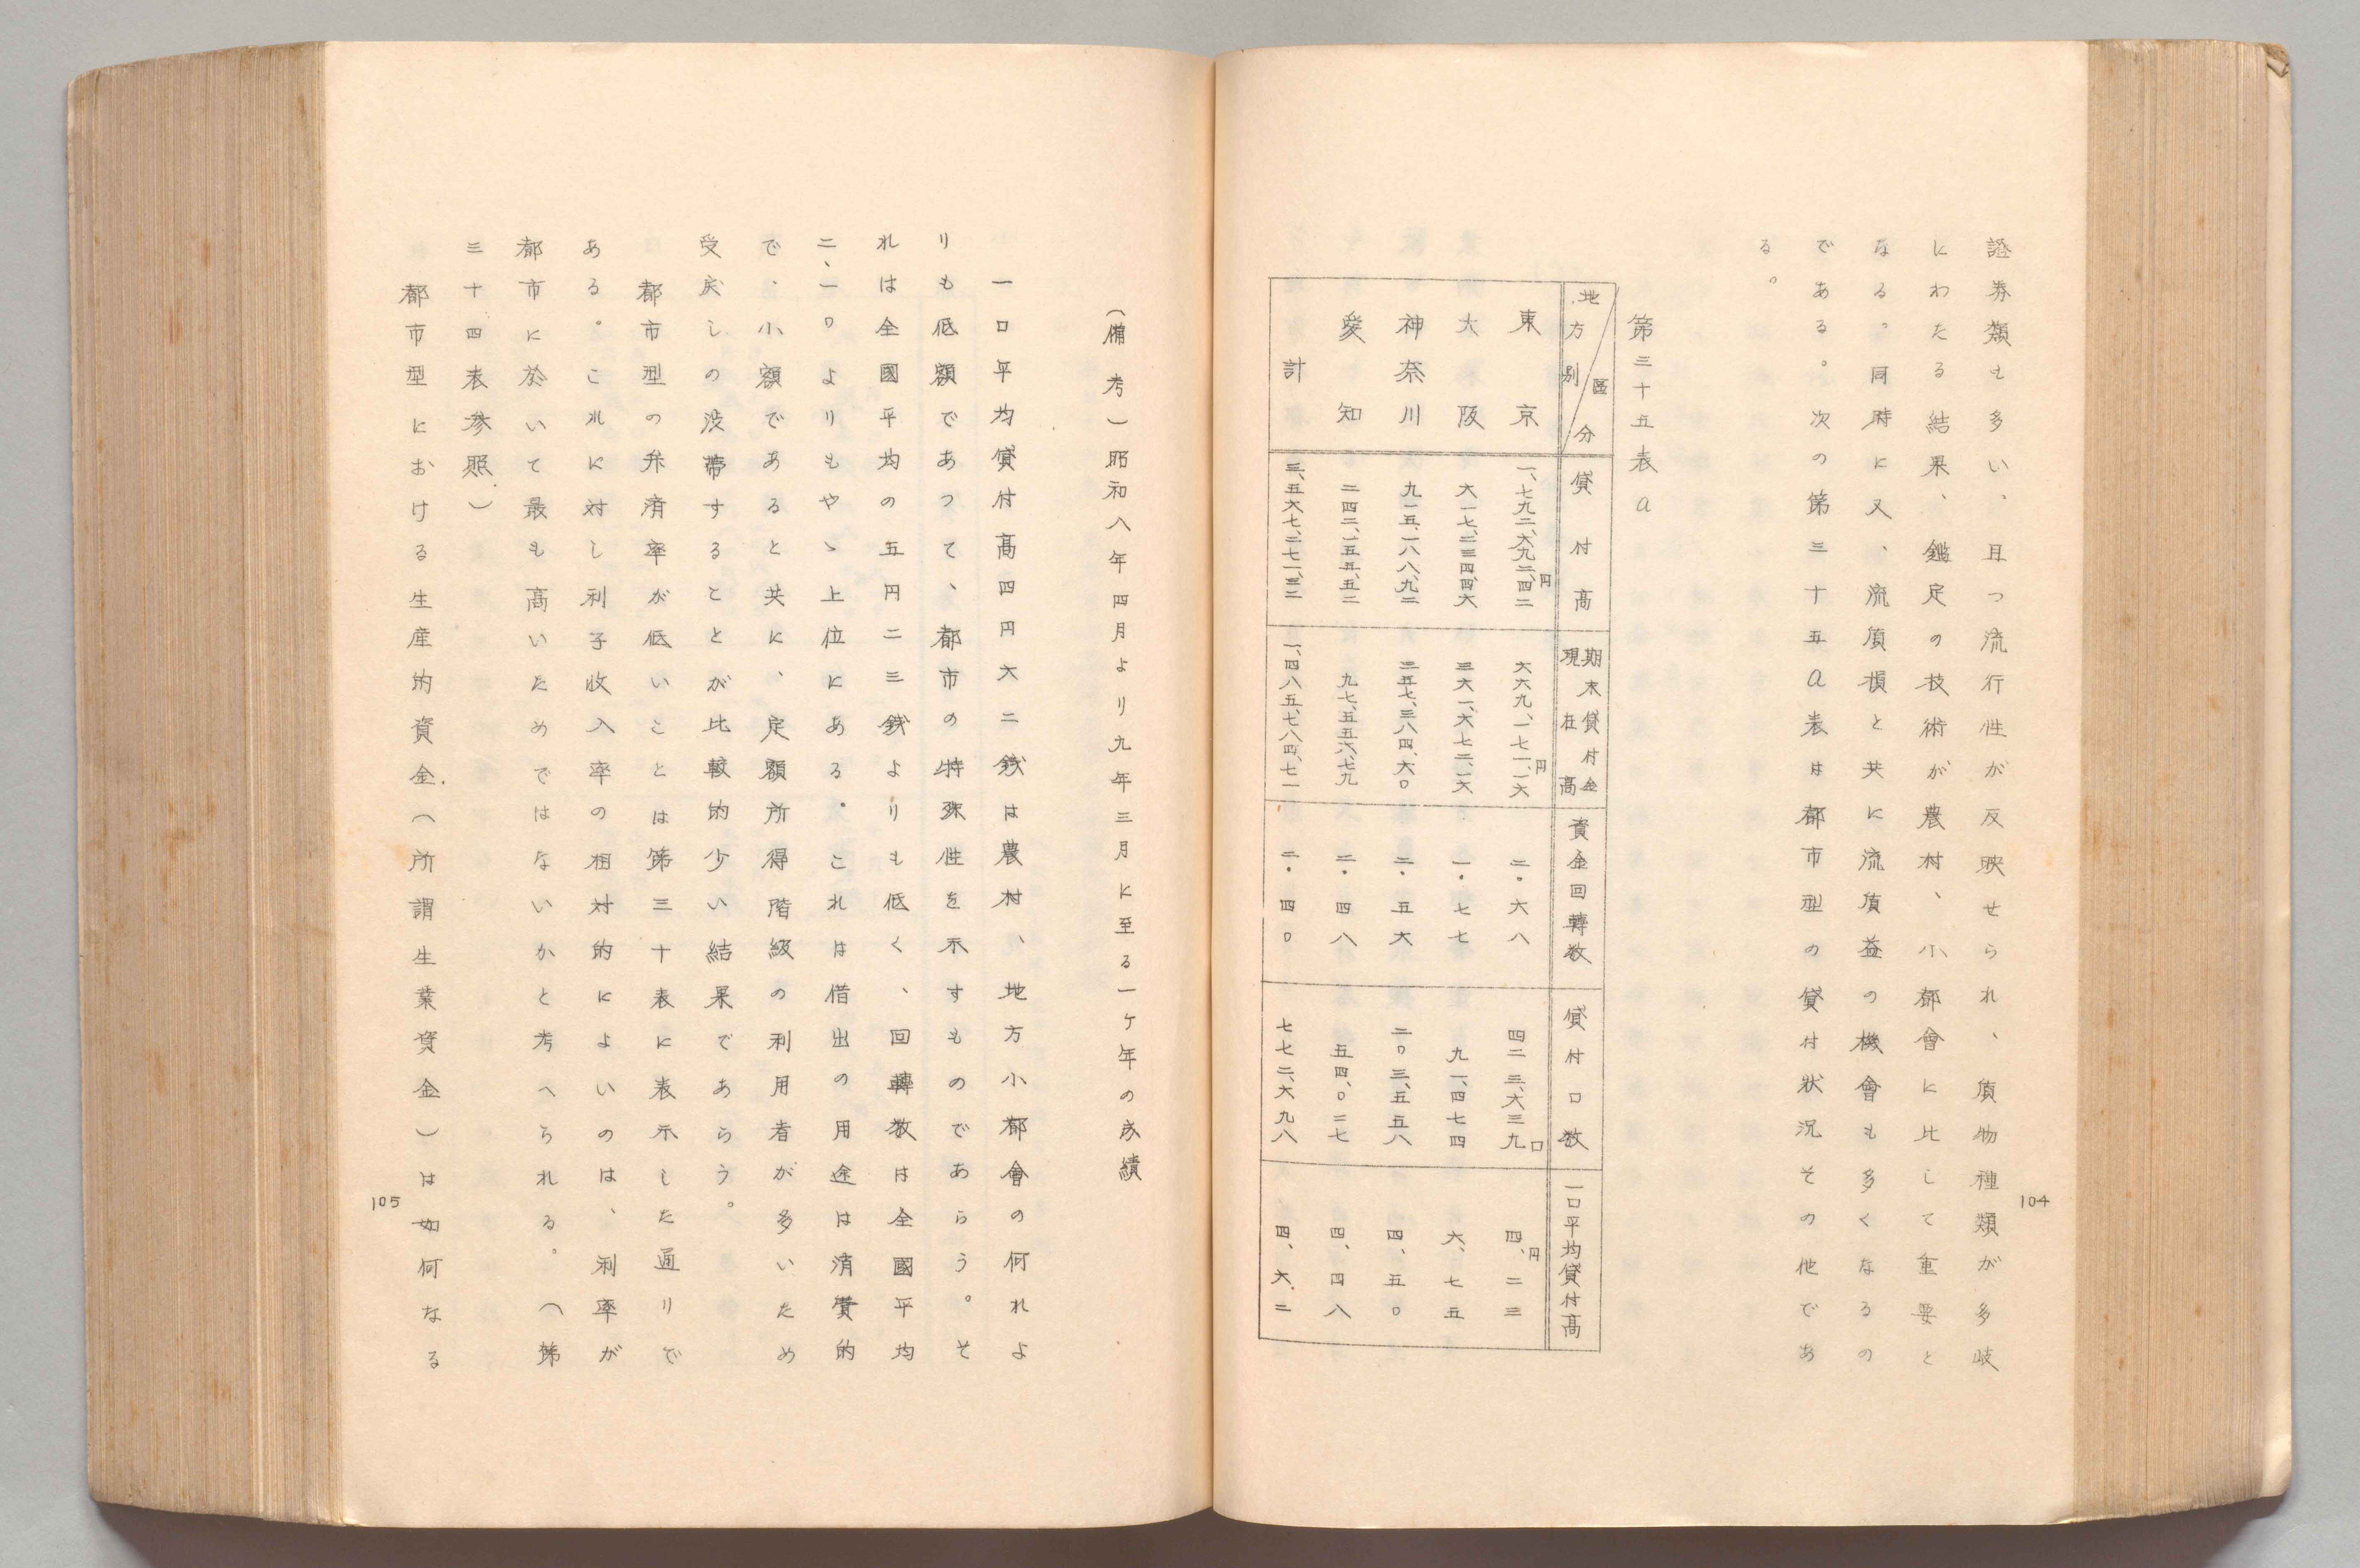 104
證券類も多い、且つ流行性が反映せられ、質物種類が多岐
にわたる結果、鑑定の技術が農村、小都會に比して重要と
なる。同時に又、流質損と共に流質益の機會も多くなるの
である。次の第三十五a表は都市型の貸付状況その他であ
る。
第三十五表a
地方別 區分 貸付高 期末貸付金現在高 資金回轉数 貸付口数 一口平均貸付高
東京 一、七九二、六九二、四二円 六六九、一七一、一六円 二・六八 四二三、六三九口 四、二三円
大阪 六一七、二三四、四六 三六一、六七二、一六 一・七七 九一、四七四 六、七五
神奈川 九一五、一八八、九二 三五七、三八四、六〇 二・五六 二〇三、五五八 四、五〇
愛知 二四二、一五五、五二 九七、五五六、七九 二・四八 五四、〇二七 四、四八
計 三、五六七、二七一、三二 一、四八五、七八四、七一 二・四〇 七七二、六九八 四、六二
（備考）昭和八年四月より九年三月に至る一ケ年の成績
一口平均貸付高四円六二銭は農村、地方小都會の何れよ
りも低額であつて、都市の特殊性を示すものであらう。そ
れは全國平均の五円二三銭よりも低く、回轉数は全國平均
二、一〇よりもやゝ上位にある。これは借出の用途は消費的
で、小額であると共に、定額所得階級の利用者が多いため
受戻しの渋帯することが比較的少い結果であらう。
都市型の弁済率が低いことは第三十表に表示した通りで
ある。これに対し利子收入率の相対的によいのは、利率が
都市に於いて最も高いためではないかと考へられる。（第
三十四表参照）
都市型における生産的資金（所謂生業資金）は如何なる
105